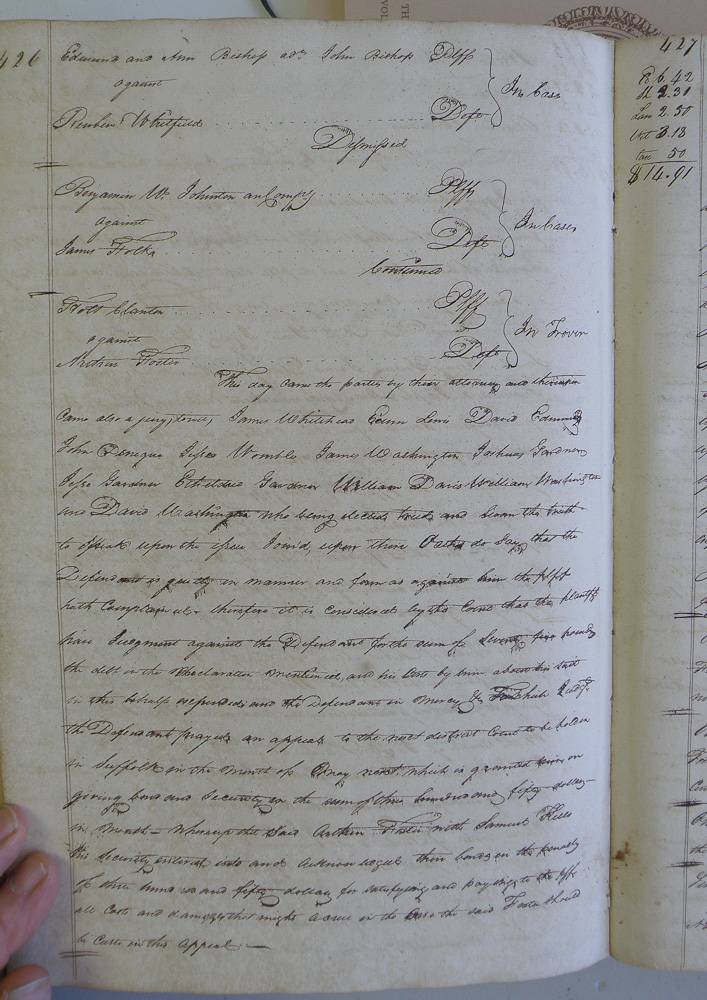 426
Edmund and Ann Bishop adm John Bishop Plffs
against
In Case
Reuben Whitfield Deft
Dismissed
Benjamin W. Johnston and Comp'y Plffs
against
In Case
James Folks Deft
Continued
Holt Clanton Plff
against
In Trover
Arthur Foster Deft
This day came the parties by their attorneys and thereupon
Came also a jury, James Whitehead Lewis David Edmunds
John Jesse Womble James Washington Joshua Gardner
Jesse Gardner Etheldred Gardner William Davis William Washington
and David Washington who being elected tried and sworn the truth
to Speak upon the issue Joined, upon their Oaths do say that the
Defendant is guilty in manner and form as against him the plff
hath Complained therefore it is considered by the Court that the plaintiff
have Judgment against the Defendant for the sum of pounds
the debt in the declaration mentioned, and his Costs by him about his suit
in this behalf expended and the Defendant in Mercy &c from which Judgt
the Defendant prayed an appeal to the next district Court to be holden
in Suffolk in the month of May next, which is granted him on
giving bond and Security in the sum of three hundred and fifty dollars
in Month Whereup the Said Arthur Foster with Samuel Kello
his Security entered into and Acknowledged their bond in the penalty
of three hundred and fifty dollars for satisfying and paying to the plff
all Costs and damages that might Accrue in Case the said Foster should
be Cast in this Appeal
427
R 6.42
2.31
Law 2.50
3.18
tax 50
$14.91